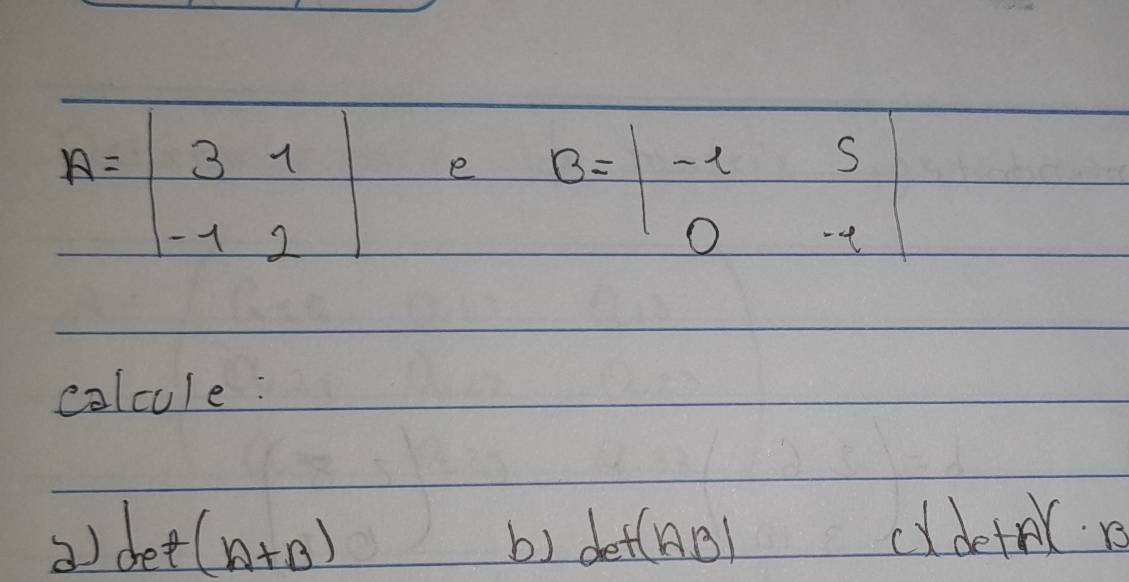 A= | 3 1 | e B= | -1 5 |
| -1 2 | | 0 -1 |
calcule:
a) det(A+B) b) det(AB) c) (detA)(·B